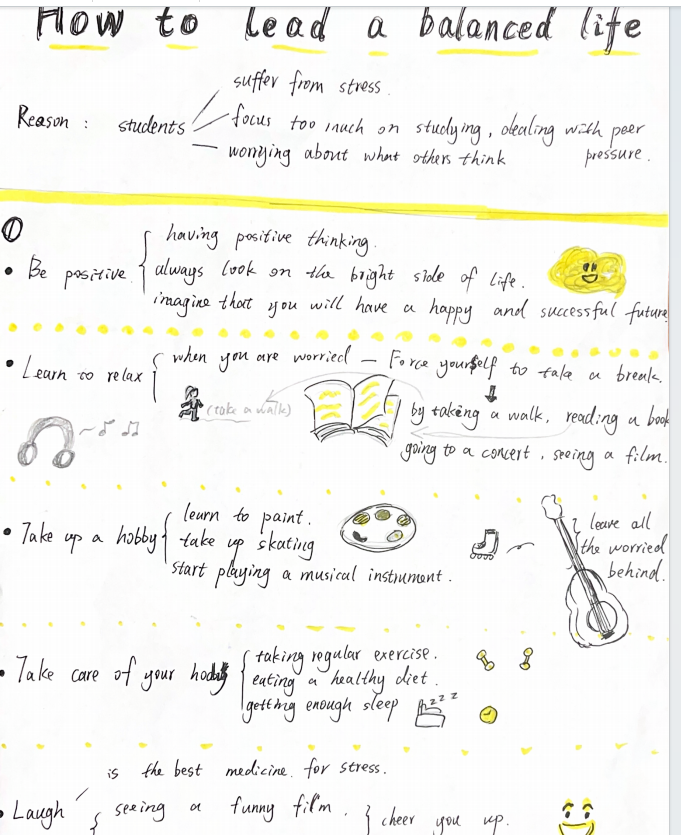 How to lead a balanced life
suffer from stress.
Reason : students
focus too much on studying, dealing with peer
pressure.
worrying about what others think
①
having positive thinking.
• Be positive.
always look on the bright side of life.
imagine that you will have a happy and successful future
• Learn to relax
when you are worried — Force yourself to take a break.
(take a walk)
by taking a walk, reading a book
going to a concert, seeing a film.
learn to paint.
• Take up a hobby
take up skating
start playing a musical instrument.
leave all
the worried
behind.
taking regular exercise.
• Take care of your
eating a healthy diet.
getting enough sleep
zzzz
is the best medicine. for stress.
• Laugh
seeing a funny film.
cheer you up.